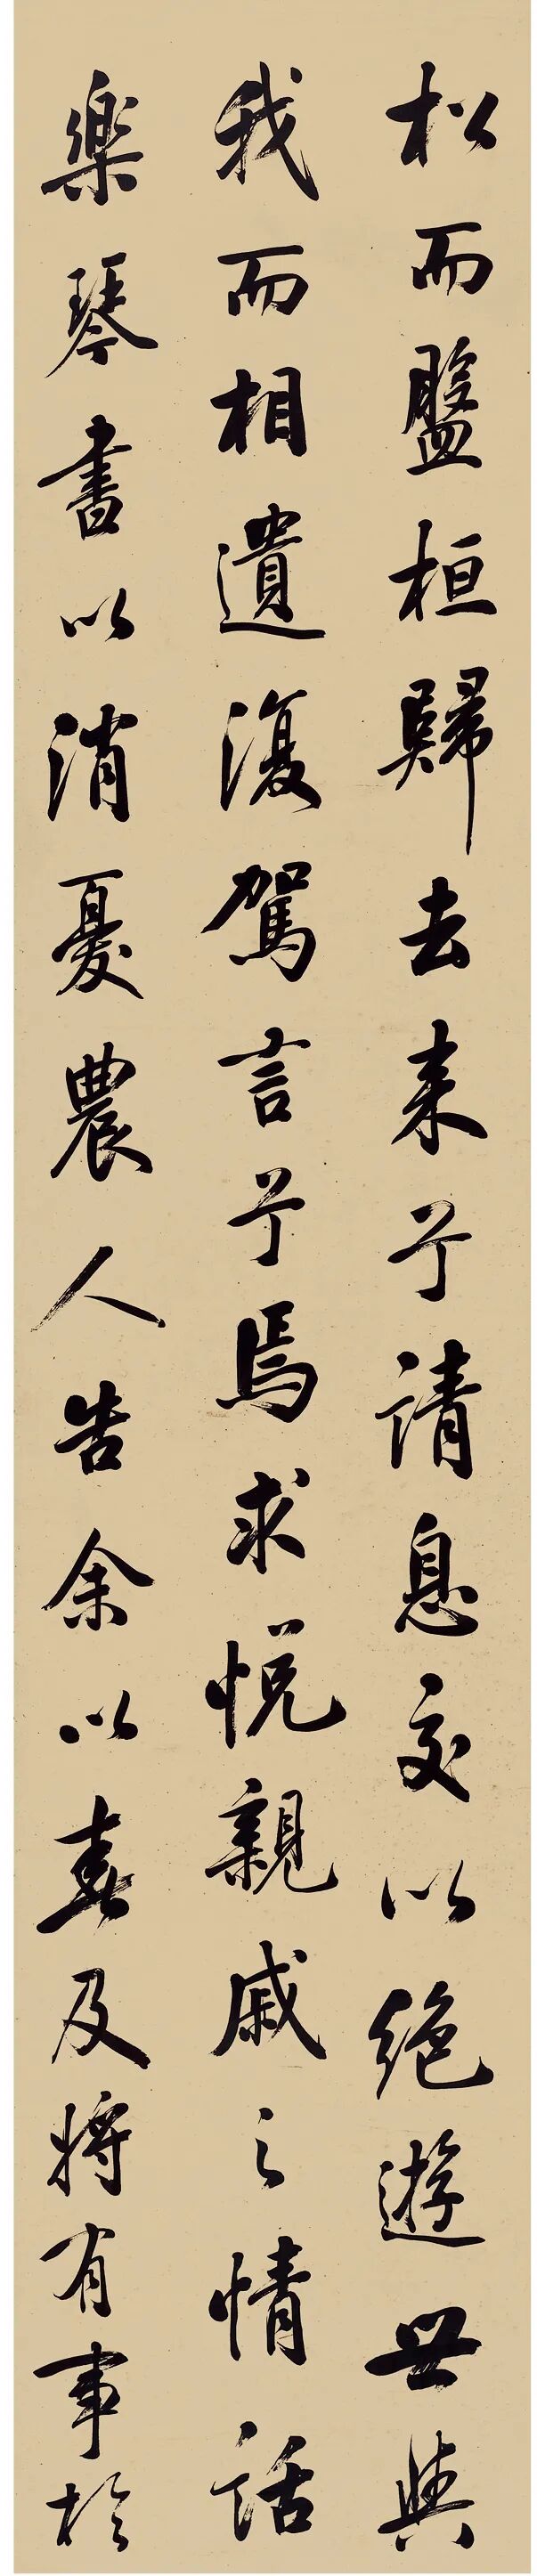 松而盤桓歸去来兮請息交以絕遊世與
我而相遺復駕言兮焉求悅親戚之情話
樂琴書以消憂農人告余以喜及將有事於